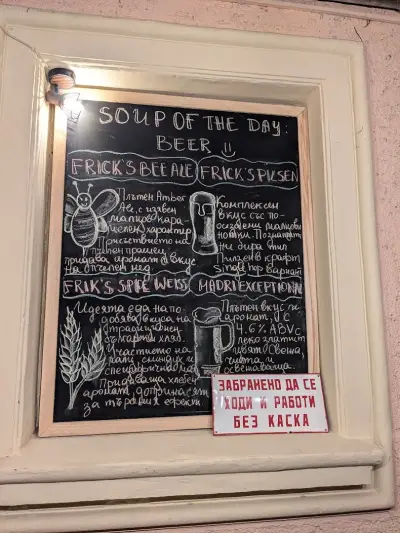 SOUP OF THE DAY:
BEER
FRICK'S BEE ALE
Плътен Amber
Ale, с изявен
малцов кара-
мелен характер.
Присъствието на
пчелен прашец
придава аромат и вкус
на пчелен мед.
FRICK'S PILSEN
Комплексен
вкус със по-
осезаеми малцови
нотки. Познатият
ни бира стил
Пилзен в крафт
single hop вариант
FRIK'S SPIRE WEISS
Идеята е да на по
добява вкуса на
традиционен
български хляб.
Участието на
и
Придаваща хлебен
аромат, допринасят
за тръпчив ефект
MADRI EXCEPTIONAL
Плътен вкус и
аромат, с
4.6% ABV с
леко златист
цвят. Свежа,
чиста и
освежаваща.
ЗАБРАНЕНО ДА СЕ
ХОДИ И РАБОТИ
БЕЗ КАСКА